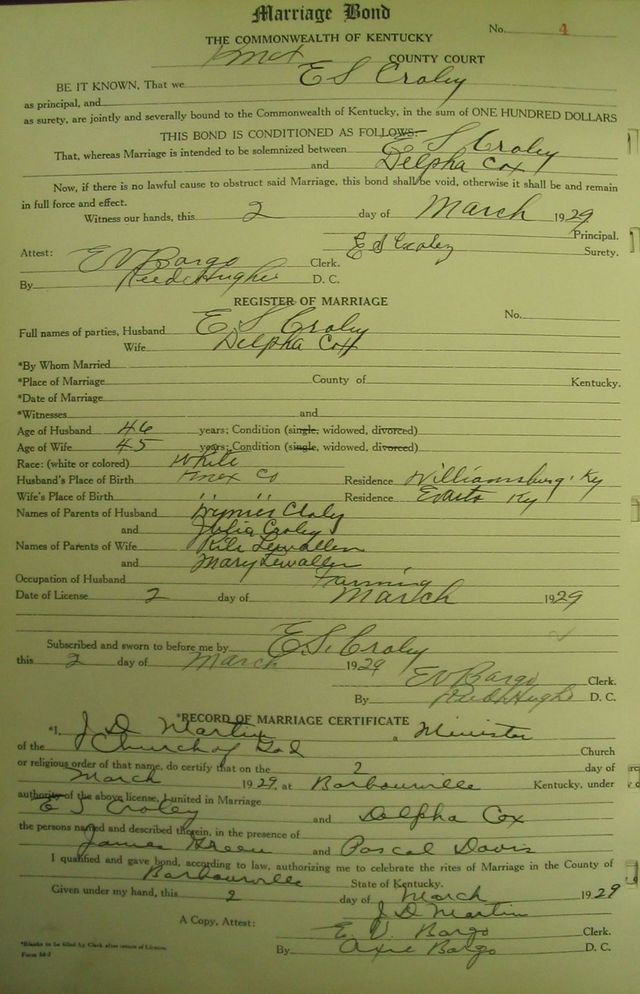 Marriage Bond
No. 4
THE COMMONWEALTH OF KENTUCKY
Knox COUNTY COURT
BE IT KNOWN, That we E S Croley
as principal, and
as surety, are jointly and severally bound to the Commonwealth of Kentucky, in the sum of ONE HUNDRED DOLLARS
THIS BOND IS CONDITIONED AS FOLLOWS:
That, whereas Marriage is intended to be solemnized between E S Croley
and Delpha Cox
Now, if there is no lawful cause to obstruct said Marriage, this bond shall be void, otherwise it shall be and remain
in full force and effect.
Witness our hands, this 2 day of March 1929
Principal.
E S Croley Surety.
Attest: E V Bargo Clerk.
By Reed Hughes D. C.
REGISTER OF MARRIAGE
No.
Full names of parties, Husband E S Croley
Wife Delpha Cox
*By Whom Married
*Place of Marriage County of Kentucky.
*Date of Marriage
*Witnesses and
Age of Husband 46 years; Condition (single, widowed, divorced)
Age of Wife 45 years; Condition (single, widowed, divorced)
Race: (white or colored) White
Husband's Place of Birth Knox Co Residence Williamsburg Ky
Wife's Place of Birth " " Residence Evarts Ky
Names of Parents of Husband Croley
and Julia Croley
Names of Parents of Wife Lewallen
and Mary Lewallen
Occupation of Husband Farming
Date of License 2 day of March 1929
Subscribed and sworn to before me by E S. Croley
this 2 day of March 1929
E V Bargo Clerk.
By Reed Hughes D. C.
*RECORD OF MARRIAGE CERTIFICATE
*I, J D Martin a Minister
of the Church of God Church
or religious order of that name, do certify that on the 2 day of
March 1929, at Barbourville Kentucky, under
authority of the above license, I united in Marriage
E S Croley and Delpha Cox
the persons named and described therein, in the presence of
James Green and Pascal Davis
I qualified and gave bond, according to law, authorizing me to celebrate the rites of Marriage in the County of
Barbourville State of Kentucky.
Given under my hand, this 2 day of March 1929
J D Martin
A Copy, Attest: E. V. Bargo Clerk.
By Axie Bargo D. C.
*Blanks to be filled by Clerk after return of License.